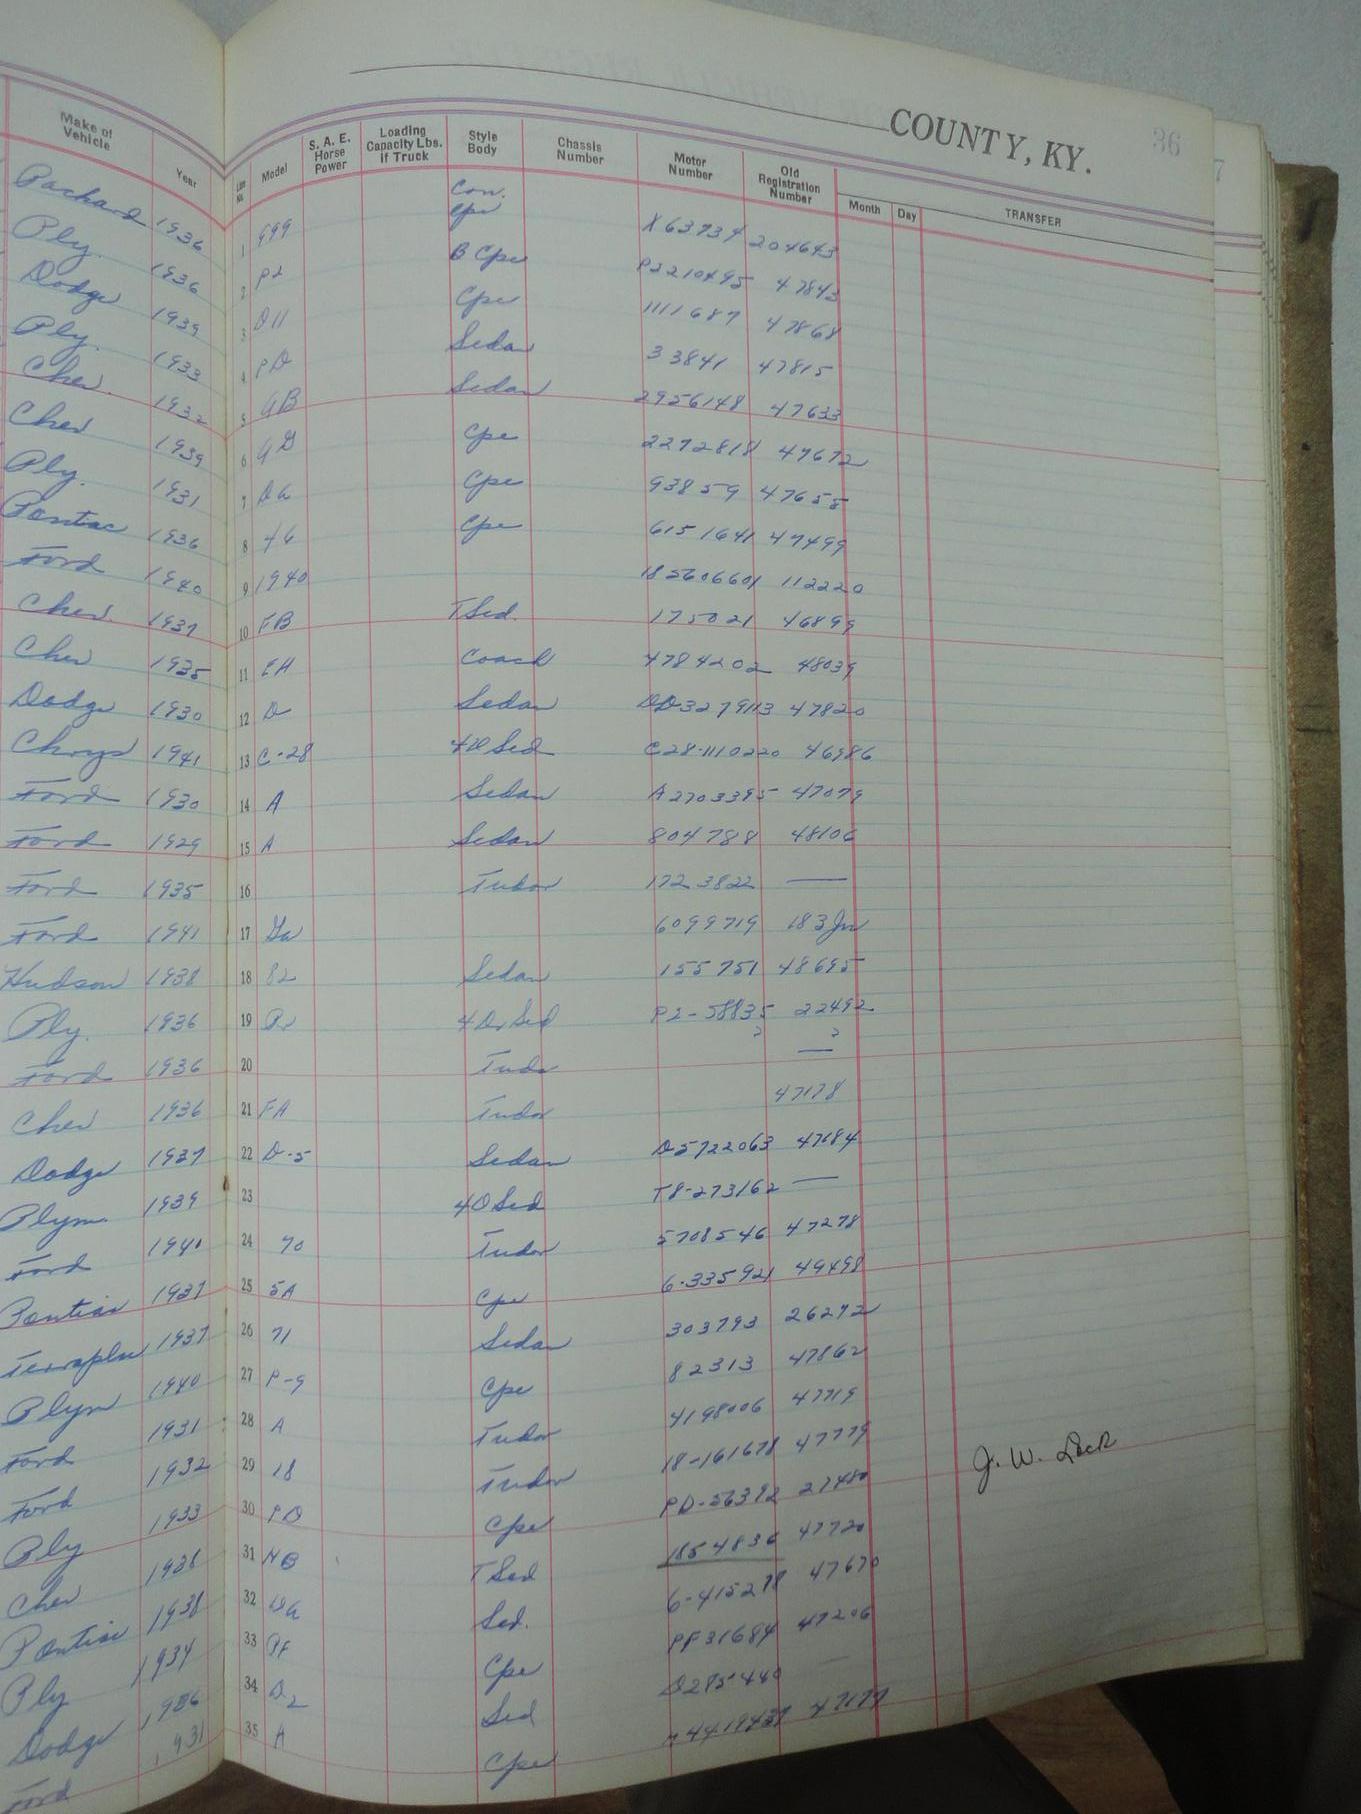 COUNTY, KY. 36
7
Make of Vehicle Year Line No. Model S. A. E. Horse Power Loading Capacity Lbs. if Truck Style Body Chassis Number Motor Number Old Registration Number Month Day TRANSFER
Con.
Packard 1936 1 999 Cpe X63734 204643
Ply. 1936 2 P2 B Cpe P2210495 47843
Dodge 1939 3 D11 Cpe 1111687 47868
Ply. 1933 4 PD Sedan 33841 47815
Chev. 1932 5 GB Sedan 2956148 47633
Chev 1939 6 Cpe 2272818 47672
Ply. 1931 7 Cpe 93859 47655
Pontiac 1936 8 Cpe 6151641 47499
Ford 1940 9 1940 185606601 112220
Chev. 1937 10 FB TSed. 175021 46899
Chev 1935 11 EA Coach 4784202 48039
Dodge 1930 12 D Sedan DD3279113 47820
Chrys 1941 13 C-28 4D Sed C28-1110220 46986
Ford 1930 14 A Sedan A2703395 47079
Ford 1929 15 A Sedan 804788 48106
Ford 1935 16 Tudor 1723822 —
Ford 1941 17 Ga 6099719 183
Hudson 1938 18 82 Sedan 155751 48695
Ply. 1936 19 4 Dr Sed P2-58835 22492
? ?
Ford 1936 20 Tudor —
Chev 1936 21 FA Tudor 47178
Dodge 1937 22 D-5 Sedan D5722063 47184
Plym. 1939 23 4D Sed T8-273162 —
Ford 1940 24 70 Tudor 5708546 47278
Pontiac 1937 25 Cpe 6-335921 49498
Terraplane 1937 26 71 Sedan 303793 26272
Plym 1940 27 P-9 Cpe 82313 47862
Ford 1931 28 A Tudor 4198006 47719
Ford 1932 29 18 Tudor 18-161678 47779
J. W.
Ply 1933 30 PD Cpe PD-56392 27480
Chev 1938 31 HB T Sed 1854836 47720
Pontiac 1938 32 Sed. 6-415278 47670
Ply 1934 33 PF Cpe PF31684 47206
Dodge 1936 34 D2 Sed D285440 —
Ford 1931 35 A Cpe 4419437 47177